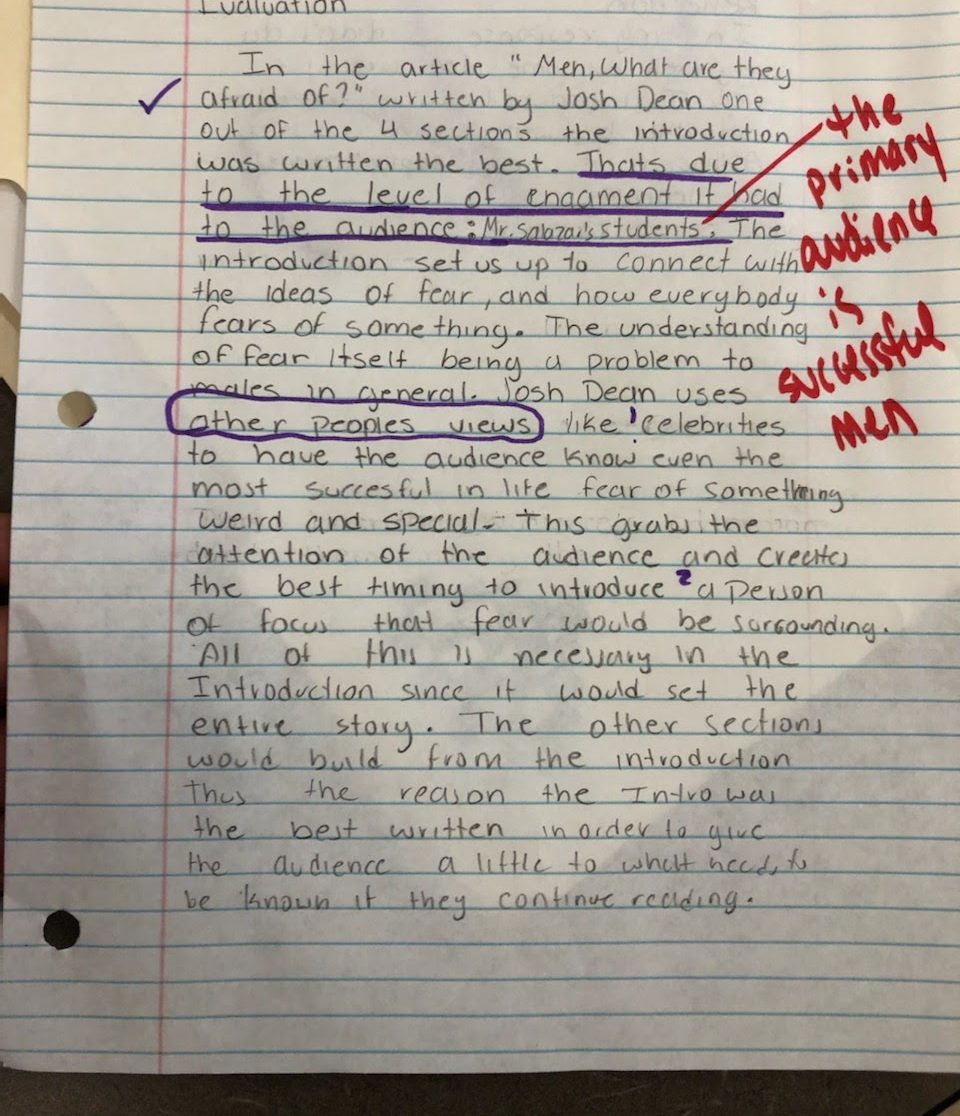 Evaluation
In the article "Men, What are they
afraid of?" written by Josh Dean one
out of the 4 sections the introduction
was written the best. Thats due
to the level of engament it had
to the audience: Mr. Sabzai's students. The
introduction set us up to connect with
the ideas of fear, and how everybody
fears of something. The understanding
of fear itself being a problem to
males in general. Josh Dean uses
other peoples views like celebrities
to have the audience know even the
most succesful in life fear of something
weird and special. This grabs the
attention of the audience and creates
the best timing to introduce a person
of focus that fear would be surrounding.
All of this is necessary in the
Introduction since it would set the
entire story. The other sections
would build from the introduction
thus the reason the Intro was
the best written in order to give
the audience a little to what needs to
be known if they continue reading.
the
primary
audience
is
successful
men